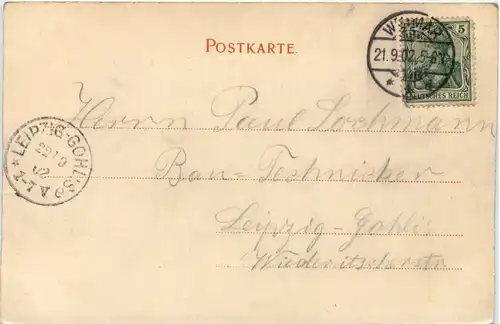 POSTKARTE.
WEIMAR
21.9.02. 5-6 N
5
DEUTSCHES REICH
Herrn Paul Lochmann
Bau-Techniker
Leipzig-Gohlis
Wiederitscherstr
* LEIPZIG-GOHLIS
22 9
02